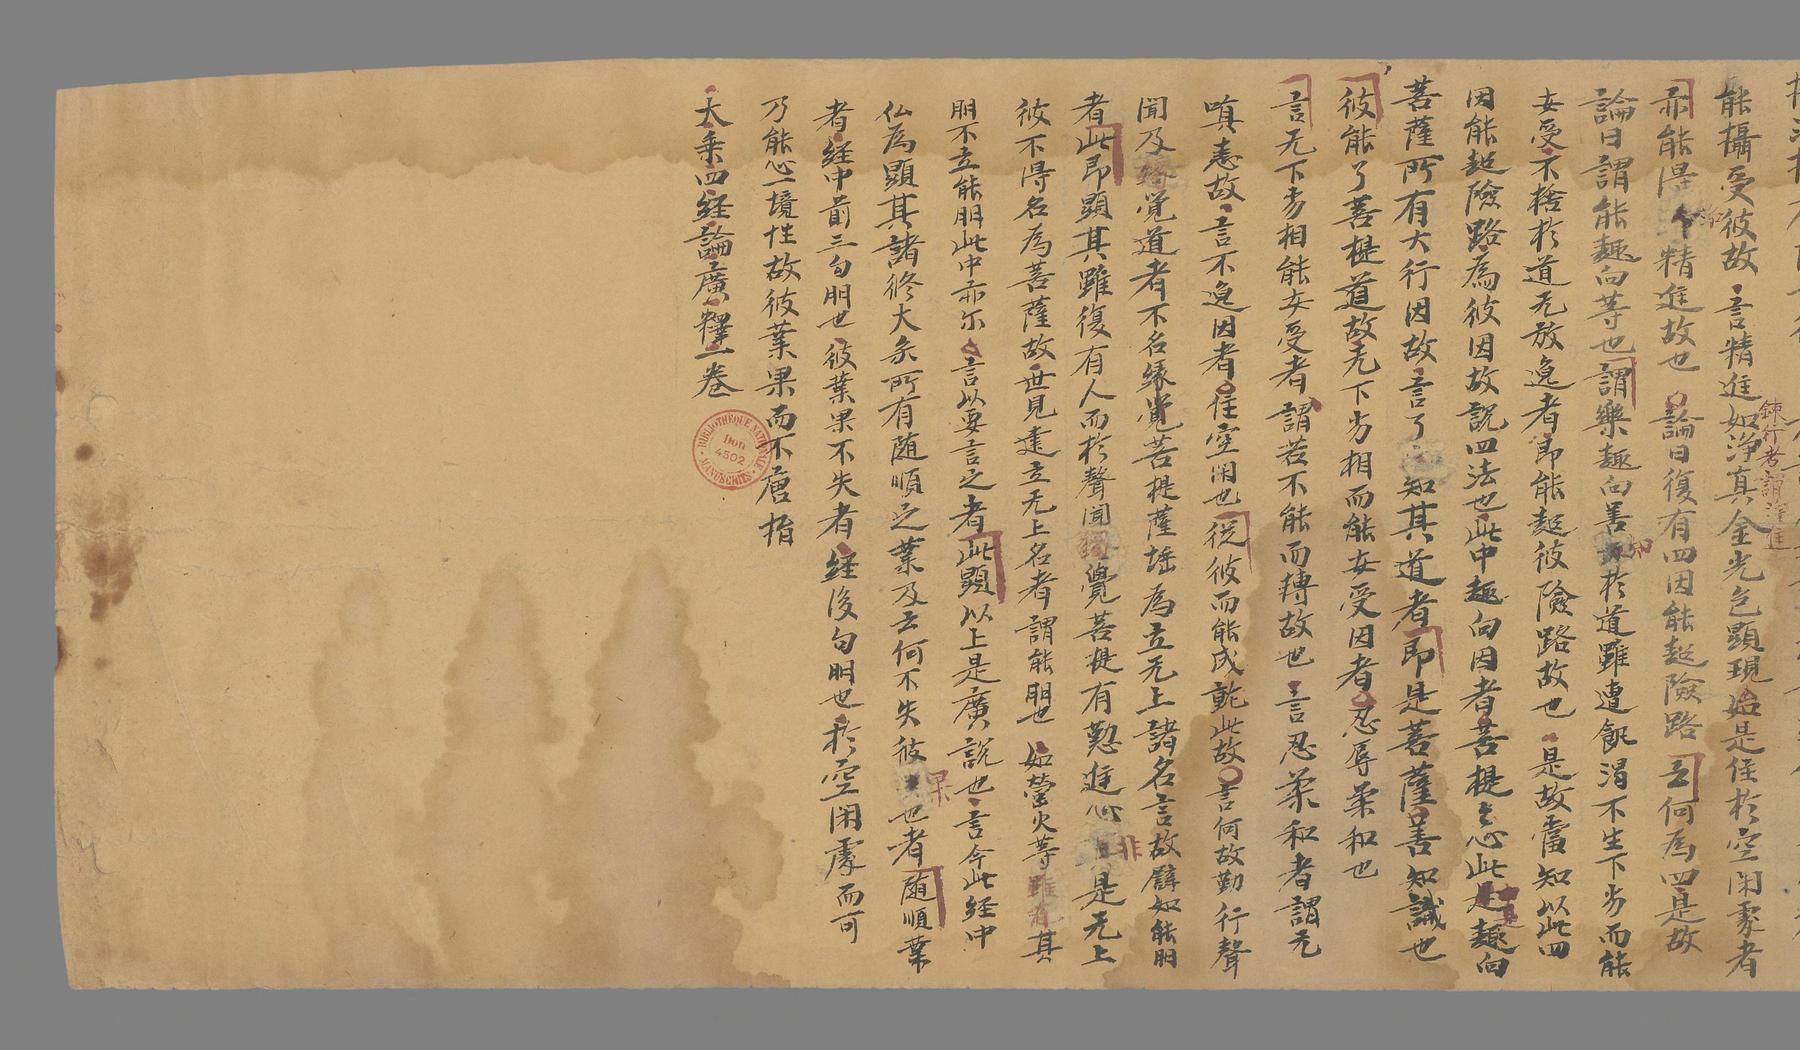 能攝受彼故言精進如淨真金光色顯現始是住於空閑處者
亦能得 精進故也論曰復有四因能超險路云何為四是故
論曰謂能趣向等也謂樂趣向善 於道雖遭飢渴不生下劣而能
安受不捨於道无放逸者即能超彼險路故也是故當知以此四
因能超險路為彼因故說四法也此中趣向因者菩提之心此是趣向
菩薩所有大行因故言了 知其道者即是菩薩善知識也
彼能了菩提道故无下劣相而能安受因者忍辱柔和也
言无下劣相能安受者謂若不能而轉故也言忍柔和者謂无
嗔恚故言不逸因者住空閑也從彼而能成就此故言何故勤行聲
聞及 覺道者不名緣覺菩提薩埵為立无上諸名言故譬如能明
者此即顯其雖復有人而於聲聞獨覺菩提有懃進心 非是无上
彼不得名為菩薩故世見建立无上名者謂能明也如螢火等雖有其
明不立能明此中亦尔言以要言之者此顯以上是廣說也言今此經中
仏為顯其諸修大乘所有随順之業及云何不失彼果也者随順業
者經中前三句明也彼業果不失者經後句明也於空閑處而可
乃能心一境性故彼業果而不唐捐
大乘四經論廣釋一卷
鍊行者謂淨進
知
非
果
BIBLIOTHEQUE NATIONALE
Don
4502
MANUSCRITS